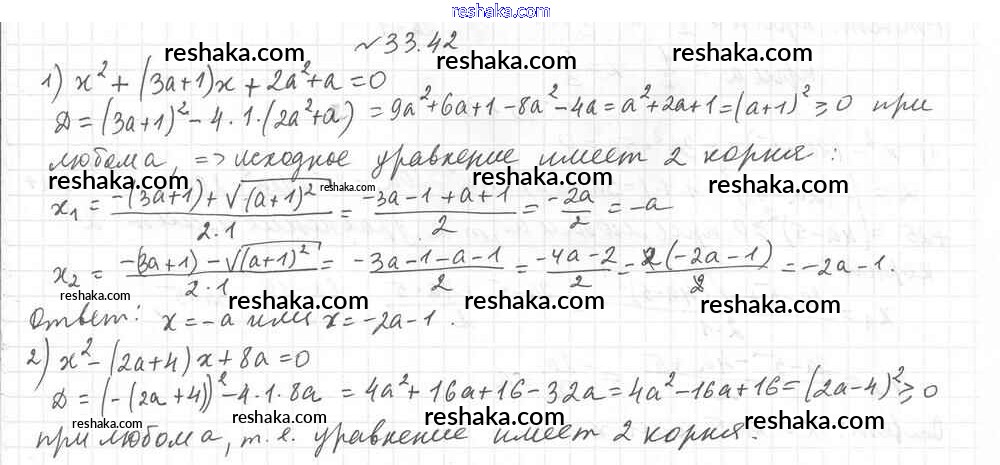 www.reshaka.com
№33.42
reshaka.com reshaka.com reshaka.com
1) x² + (3a+1)x + 2a² + a = 0
Д = (3a+1)² - 4·1·(2a²+a) = 9a²+6a+1-8a²-4a = a²+2a+1 = (a+1)² ≥ 0 при
reshaka.com reshaka.com reshaka.com
любом a, => исходное уравнение имеет 2 корня:
reshaka.com reshaka.com reshaka.com reshaka.com
x₁ = (-(3a+1) + √(a+1)²)/(2·1) = (-3a-1+a+1)/2 = -2a/2 = -a
x₂ = (-(3a+1) - √(a+1)²)/(2·1) = (-3a-1-a-1)/2 = (-4a-2)/2 = 2(-2a-1)/2 = -2a-1.
reshaka.com reshaka.com reshaka.com reshaka.com
Ответ: x = -a или x = -2a-1.
2) x² - (2a+4)x + 8a = 0
reshaka.com reshaka.com reshaka.com
Д = (-(2a+4))² - 4·1·8a = 4a²+16a+16-32a = 4a²-16a+16 = (2a-4)² ≥ 0
reshaka.com reshaka.com reshaka.com reshaka.com
при любом a, т.е. уравнение имеет 2 корня:
reshaka.com reshaka.com reshaka.com